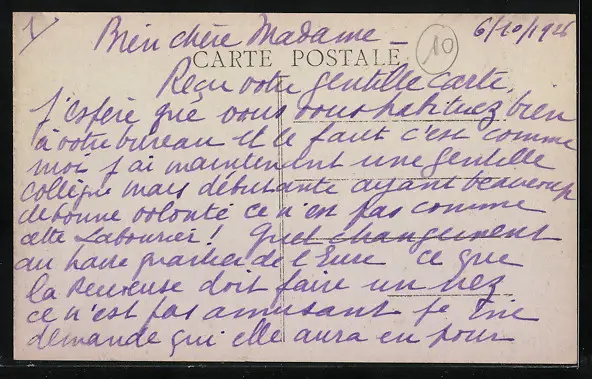 Bien chère Madame _ 6/10/1926
CARTE POSTALE 10
Reçu votre gentille carte.
J'espère que vous vous habituez bien
à votre bureau et le faut c'est comme
moi j'ai maintenant une gentille
collègue mais débutante ayant beaucoup
de bonne volonté ce n'est pas comme
cette Labourier! Quel changement
au de l'Eure ce que
la Receveuse doit faire un nez
ce n'est pas amusant je me
demande qui elle aura en pour